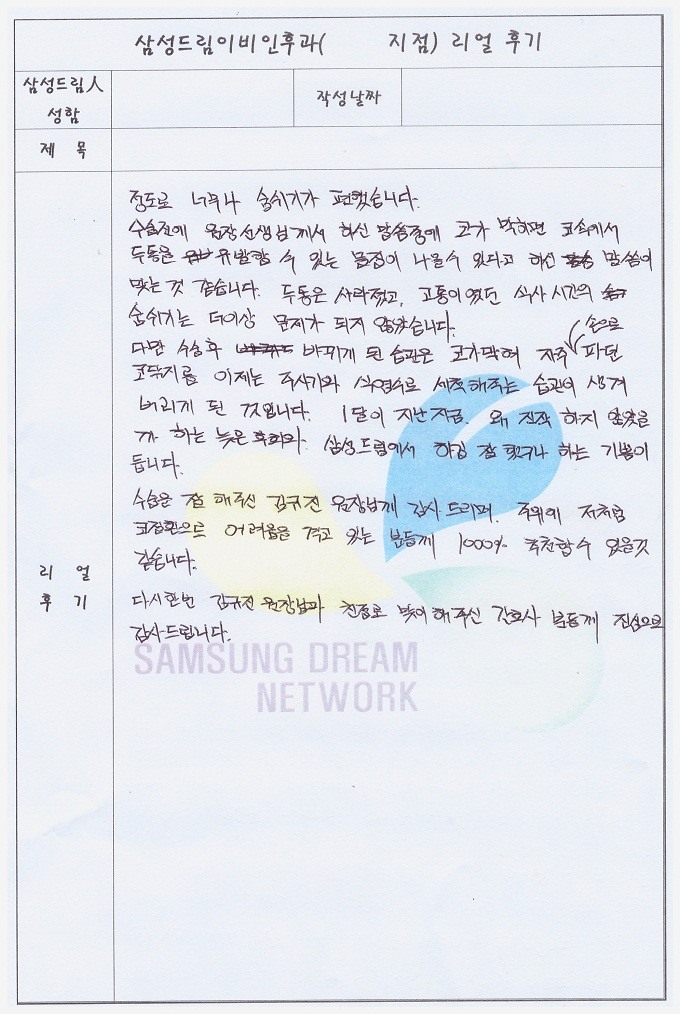 삼성드림이비인후과(      지점) 리얼 후기
삼성드림人
성함
작성날짜
제 목
정도로 너무나 숨쉬기가 편했습니다.
수술전에 원장선생님께서 하신 말씀중에 코가 막히면 코속에서
두통을 유발할 수 있는 물질이 나올수 있다고 하신 말씀이
맞는것 같습니다. 두통은 사라졌고, 고통이였던 식사 시간의
숨쉬기는 더이상 문제가 되지 않았습니다.
손으로
다만 수술후 바뀌게 된 습관은 코가막혀 자주 파던
코딱지를 이제는 주사기와 식염수로 세척해주는 습관이 생겨
버리게 된 것입니다. 1달이 지난지금. 왜 진작 하지 않았을
까 하는 늦은 후회와. 삼성드림에서 하길 잘 했구나 하는 기쁨이
듭니다.
수술을 잘 해주신 김규진 원장님께 감사드리며. 주위에 저처럼
코질환으로 어려움을 겪고 있는 분들께 1000% 추천할수 있을것
같습니다.
리 얼
후 기
다시한번 김규진 원장님과 친절로 맞이해주신 간호사 분들께 진심으로
감사드립니다.
SAMSUNG DREAM
NETWORK